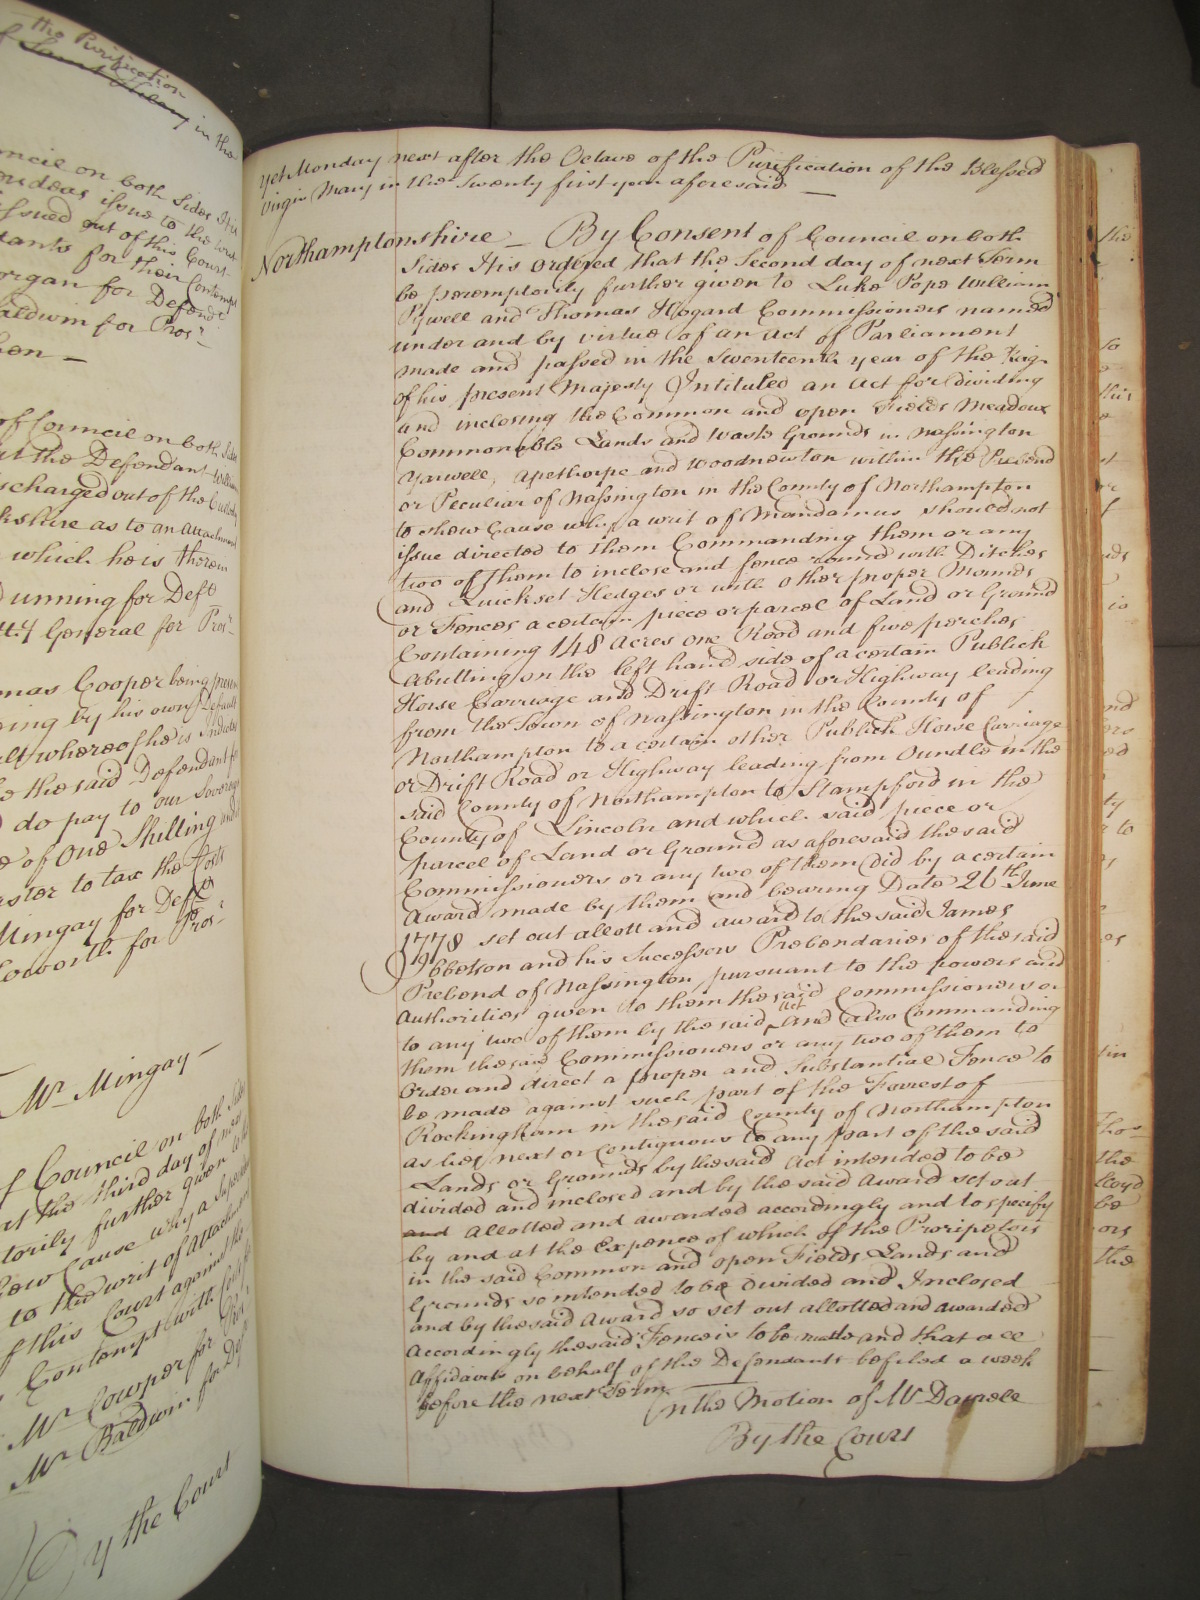 the Purification
of Saint Hilary in the
uncil on both Sides It is
issue to the
issued out of this Court
dants for their Contempt
organ for Defendt
aldwin for Prosr
hen
of Council on both Sides
at the Defendant William
scharged out of the Custody
kshire as to an Attachment
which he is therein
Dunning for Deft
Atty General for Prosr
mas Cooper being present
ing by his own Default
alt whereof he is Indicted
e the said Defendant for
do pay to our Sovereign
e of One Shilling and
aster to tax the Costs
Mingay for Deft
oworth for Prosr
Mr Mingay
f Council on both Sides
at the third day of next
torily further given to the
hew Cause why a Supersedeas
to the writ of Attachment
f this Court against the
Contempt with
Mr Cowper for Prosr
Mr Baldwin for Deft
By the Court
yet Monday next after the Octave of the Purification of the Blessed
Virgin Mary in the Twenty first year aforesaid
Northamptonshire – By Consent of Council on both
Sides It is Ordered that the Second day of next Term
be peremptorily further given to Luke Pope William
Pywell and Thomas Hogard Commissioners named
under and by virtue of an Act of Parliament
made and passed in the Seventeenth year of the Reign
of his present Majesty Intituled an Act for dividing
and inclosing the Common and open Fields Meadows
Commonable Lands and Waste Grounds in Nassington
Yarwell, Apethorpe and Woodnewton within the Prebend
or Peculiar of Nassington in the County of Northampton
to shew Cause why a writ of Mandamus should not
issue directed to them Commanding them or any
two of them to inclose and fence round with Ditches
and Quickset Hedges or with other proper Mounds
or Fences a certain piece or parcel of Land or Ground
Containing 148 Acres One Rood and five perches
abutting on the left hand side of a certain Publick
Horse Carriage and Drift Road or Highway leading
from the Town of Nassington in the County of
Northampton to a certain other Publick Horse Carriage
or Drift Road or Highway leading from Oundle in the
said County of Northampton to Stampford in the
County of Lincoln and which said piece or
parcel of Land or Ground as aforesaid the said
Commissioners or any two of them did by a certain
Award made by them and bearing Date 26th June
1778 set out allott and award to the said James
Ibbetson and his Successors Prebendaries of the said
Prebend of Nassington pursuant to the powers and
Authorities given to them the said Commissioners or
to any two of them by the said Act And also Commanding
them the said Commissioners or any two of them to
Order and direct a proper and Substantial Fence to
be made against such part of the Forrest of
Rockingham in the said County of Northampton
as lies next or Contiguous to any part of the said
Lands or Grounds by the said Act intended to be
divided and inclosed and by the said Award set out
and Allotted and awarded accordingly and to specify
by and at the Expence of which of the Proripetors
in the said Common and open Fields Lands and
Grounds so intended to be Divided and Inclosed
and by the said Award so set out allotted and awarded
Accordingly the said Fence is to be made and that all
Affidavits on behalf of the Defendants be filed a week
before the next Term
On the Motion of Mr Dayrele
By the Court
the
so
this
nd
ed
ty
to
Thos
the
Lloyd
be
ors
the